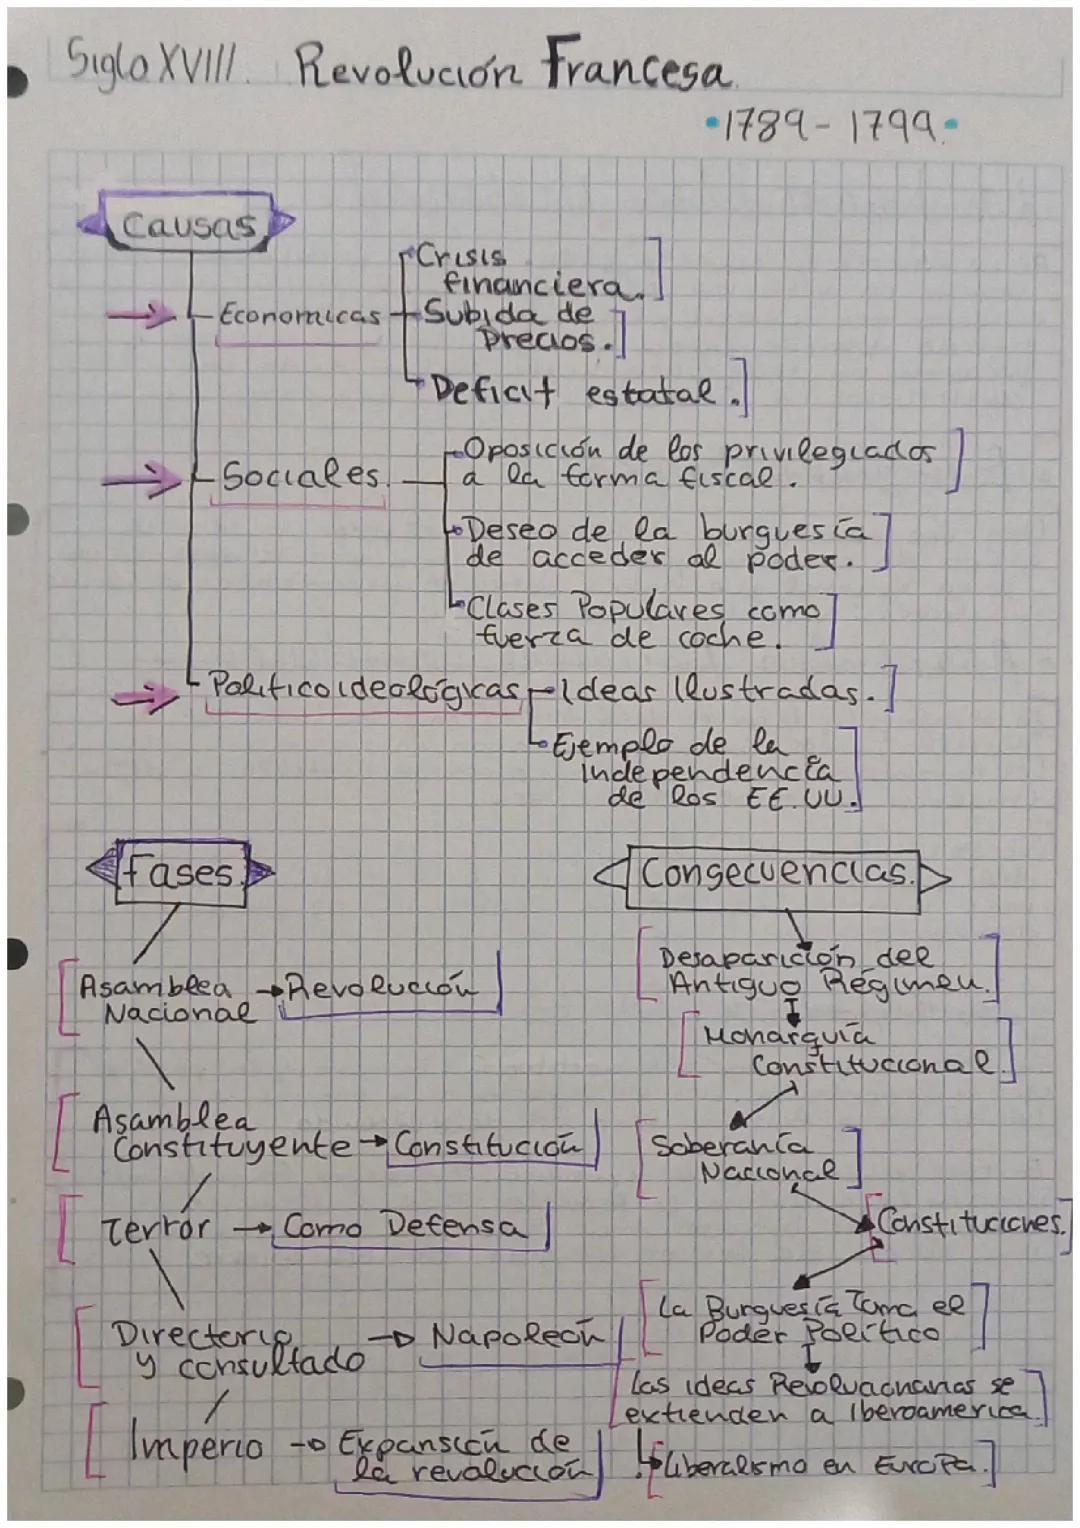 Siglo XVIII. Revolución Francesa.
•1789 - 1799•
Causas
Crisis
financiera.
Economicas
Subida de
precios.
Deficit estatal.
Sociales.
Oposición de los privilegiados
a la forma fiscal.
Deseo de la burguesía
de acceder al poder.
Clases Populares como
fuerza de coche.
Politicoideológicas
Ideas Ilustradas.
Ejemplo de la
independencia
de los EE.UU.
Fases.
Asamblea → Revolución
Nacional
Asamblea
Constituyente → Constitución
Terror → Como Defensa
Directorio → Napoleón
y consultado
Imperio → Expansión de
la revolución
Consecuencias.
Desaparición del
Antiguo Régimen.
Monarquía
Constitucional.
Soberanía
Nacional
Constituciones.
La Burguesía Toma el
Poder Político
Las ideas Revoluacnarias se
extienden a Iberoamerica.
Liberalismo en Europa.